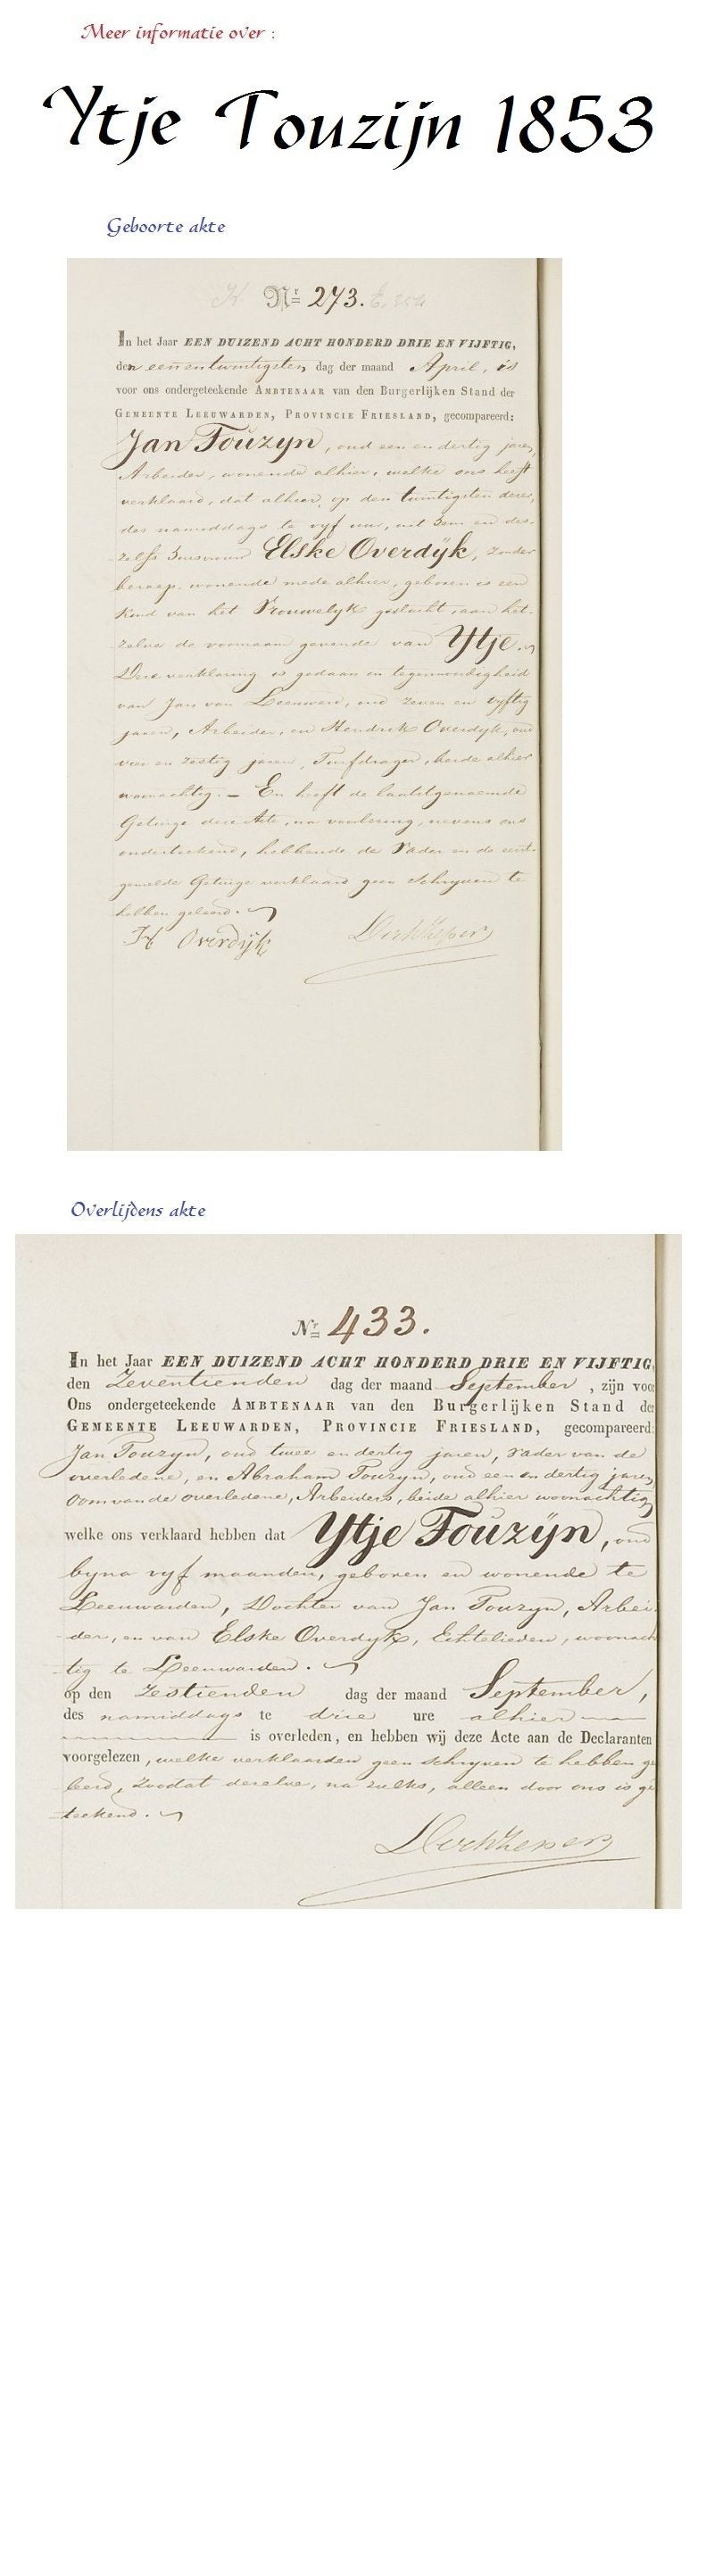 Meer informatie over :
Ytje Touzijn 1853
Geboorte akte
Nr 273.
In het Jaar EEN DUIZEND ACHT HONDERD DRIE EN VIJFTIG,
den eenentwintigsten dag der maand April, is
voor ons ondergeteekende AMBTENAAR van den Burgerlijken Stand der
GEMEENTE LEEUWARDEN, PROVINCIE FRIESLAND, gecompareerd:
Jan Touzyn, oud een en dertig jaren,
Arbeider, wonende alhier, welke ons heeft
verklaard, dat alhier op den twintigsten dezer,
des namiddags te vyf uur, uit hem en des-
zelfs huisvrouw Elske Overdÿk, zonder
beroep, wonende mede alhier, geboren is een
kind van het Vrouwelyk geslacht, aan het-
zelve de voornaam gevende van Ytje.
Deze verklaring is gedaan in tegenwoordigheid
van Jan van Leeuwen, oud zeven en vyftig
jaren, Arbeider, en Hendrik Overdyk, oud
vier en zestig jaren, Turfdrager, beide alhier
woonachtig. – En heeft de laatstgenoemde
Getuige deze Acte, na voorlezing, nevens ons
onderteekend, hebbende de Vader en de eerst-
gemelde Getuige verklaard geen schryven te
hebben geleerd.
H Overdijk
Overlijdens akte
Nr 433.
In het Jaar EEN DUIZEND ACHT HONDERD DRIE EN VIJFTIG,
den Zeventienden dag der maand September, zijn voor
Ons ondergeteekende AMBTENAAR van den Burgerlijken Stand der
GEMEENTE LEEUWARDEN, PROVINCIE FRIESLAND, gecompareerd:
Jan Touzyn, oud twee en dertig jaren, Vader van de
overledene, en Abraham Touzyn, oud een en dertig jaren,
Oom van de overledene, Arbeiders, beide alhier woonachtig,
welke ons verklaard hebben dat Ytje Toúzÿn, oud
byna vyf maanden, geboren en wonende te
Leeuwarden, Dochter van Jan Touzyn, Arbei-
der, en van Elske Overdyk, Echtelieden, woonach-
tig te Leeuwarden.
op den zestienden dag der maand September,
des namiddags te drie ure alhier
is overleden, en hebben wij deze Acte aan de Declaranten
voorgelezen, welke verklaarden geen schryven te hebben ge-
leerd, zoodat dezelve, na zulks, alleen door ons is ge-
teekend.